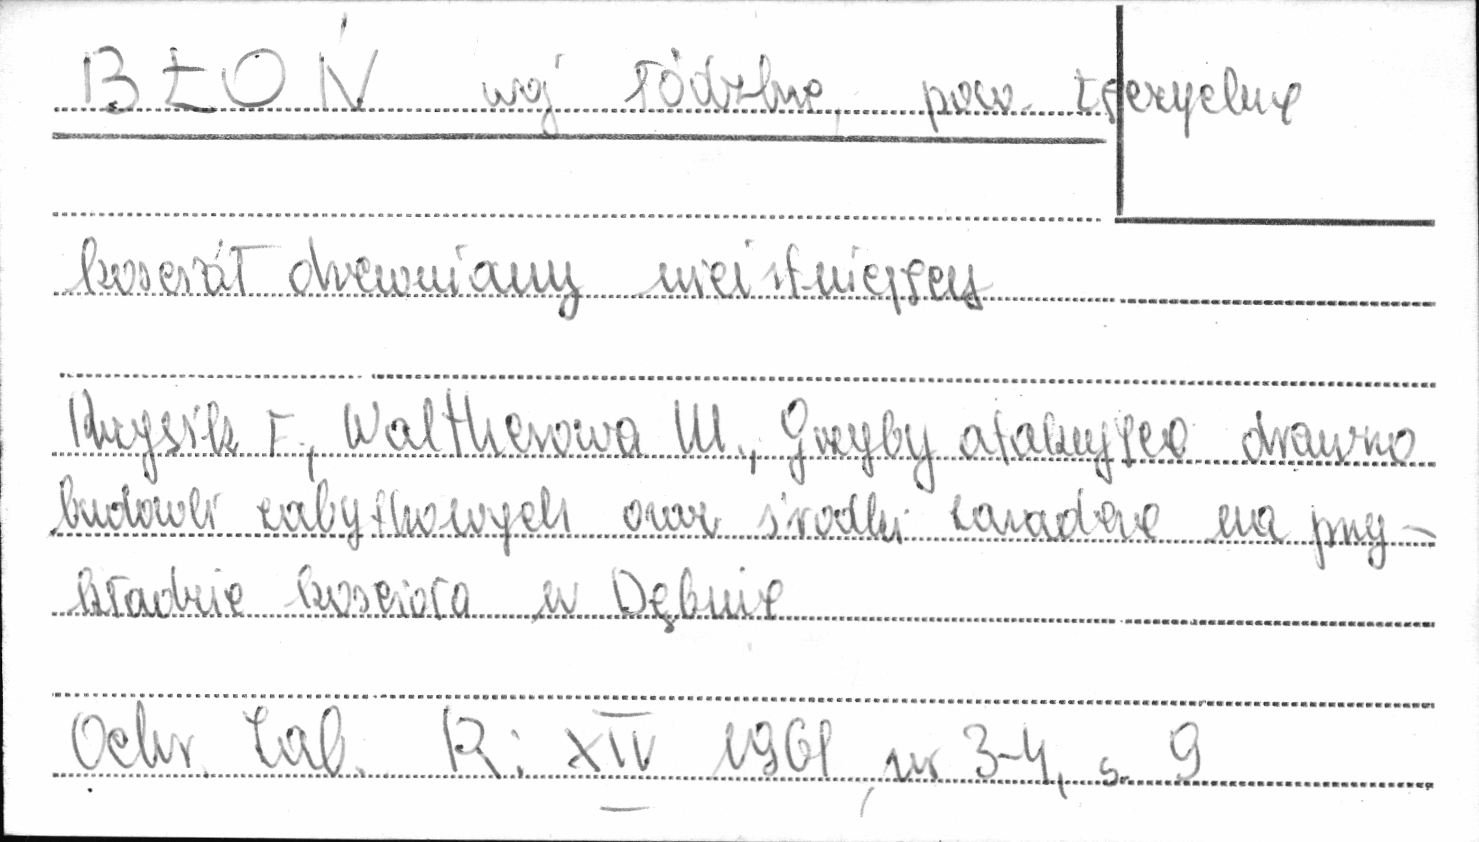 BŁOŃ woj łódzkie, pow. Łęczyckie
kościół drewniany nieistniejący
Krzysik F., Waltherowa M., Grzyby atakujące drewno
budowli zabytkowych oraz środki zaradcze na przy-
kładzie kościoła w Dębnie
Ochr. Zab. R: XIV 1961, nr 3-4, s. 9